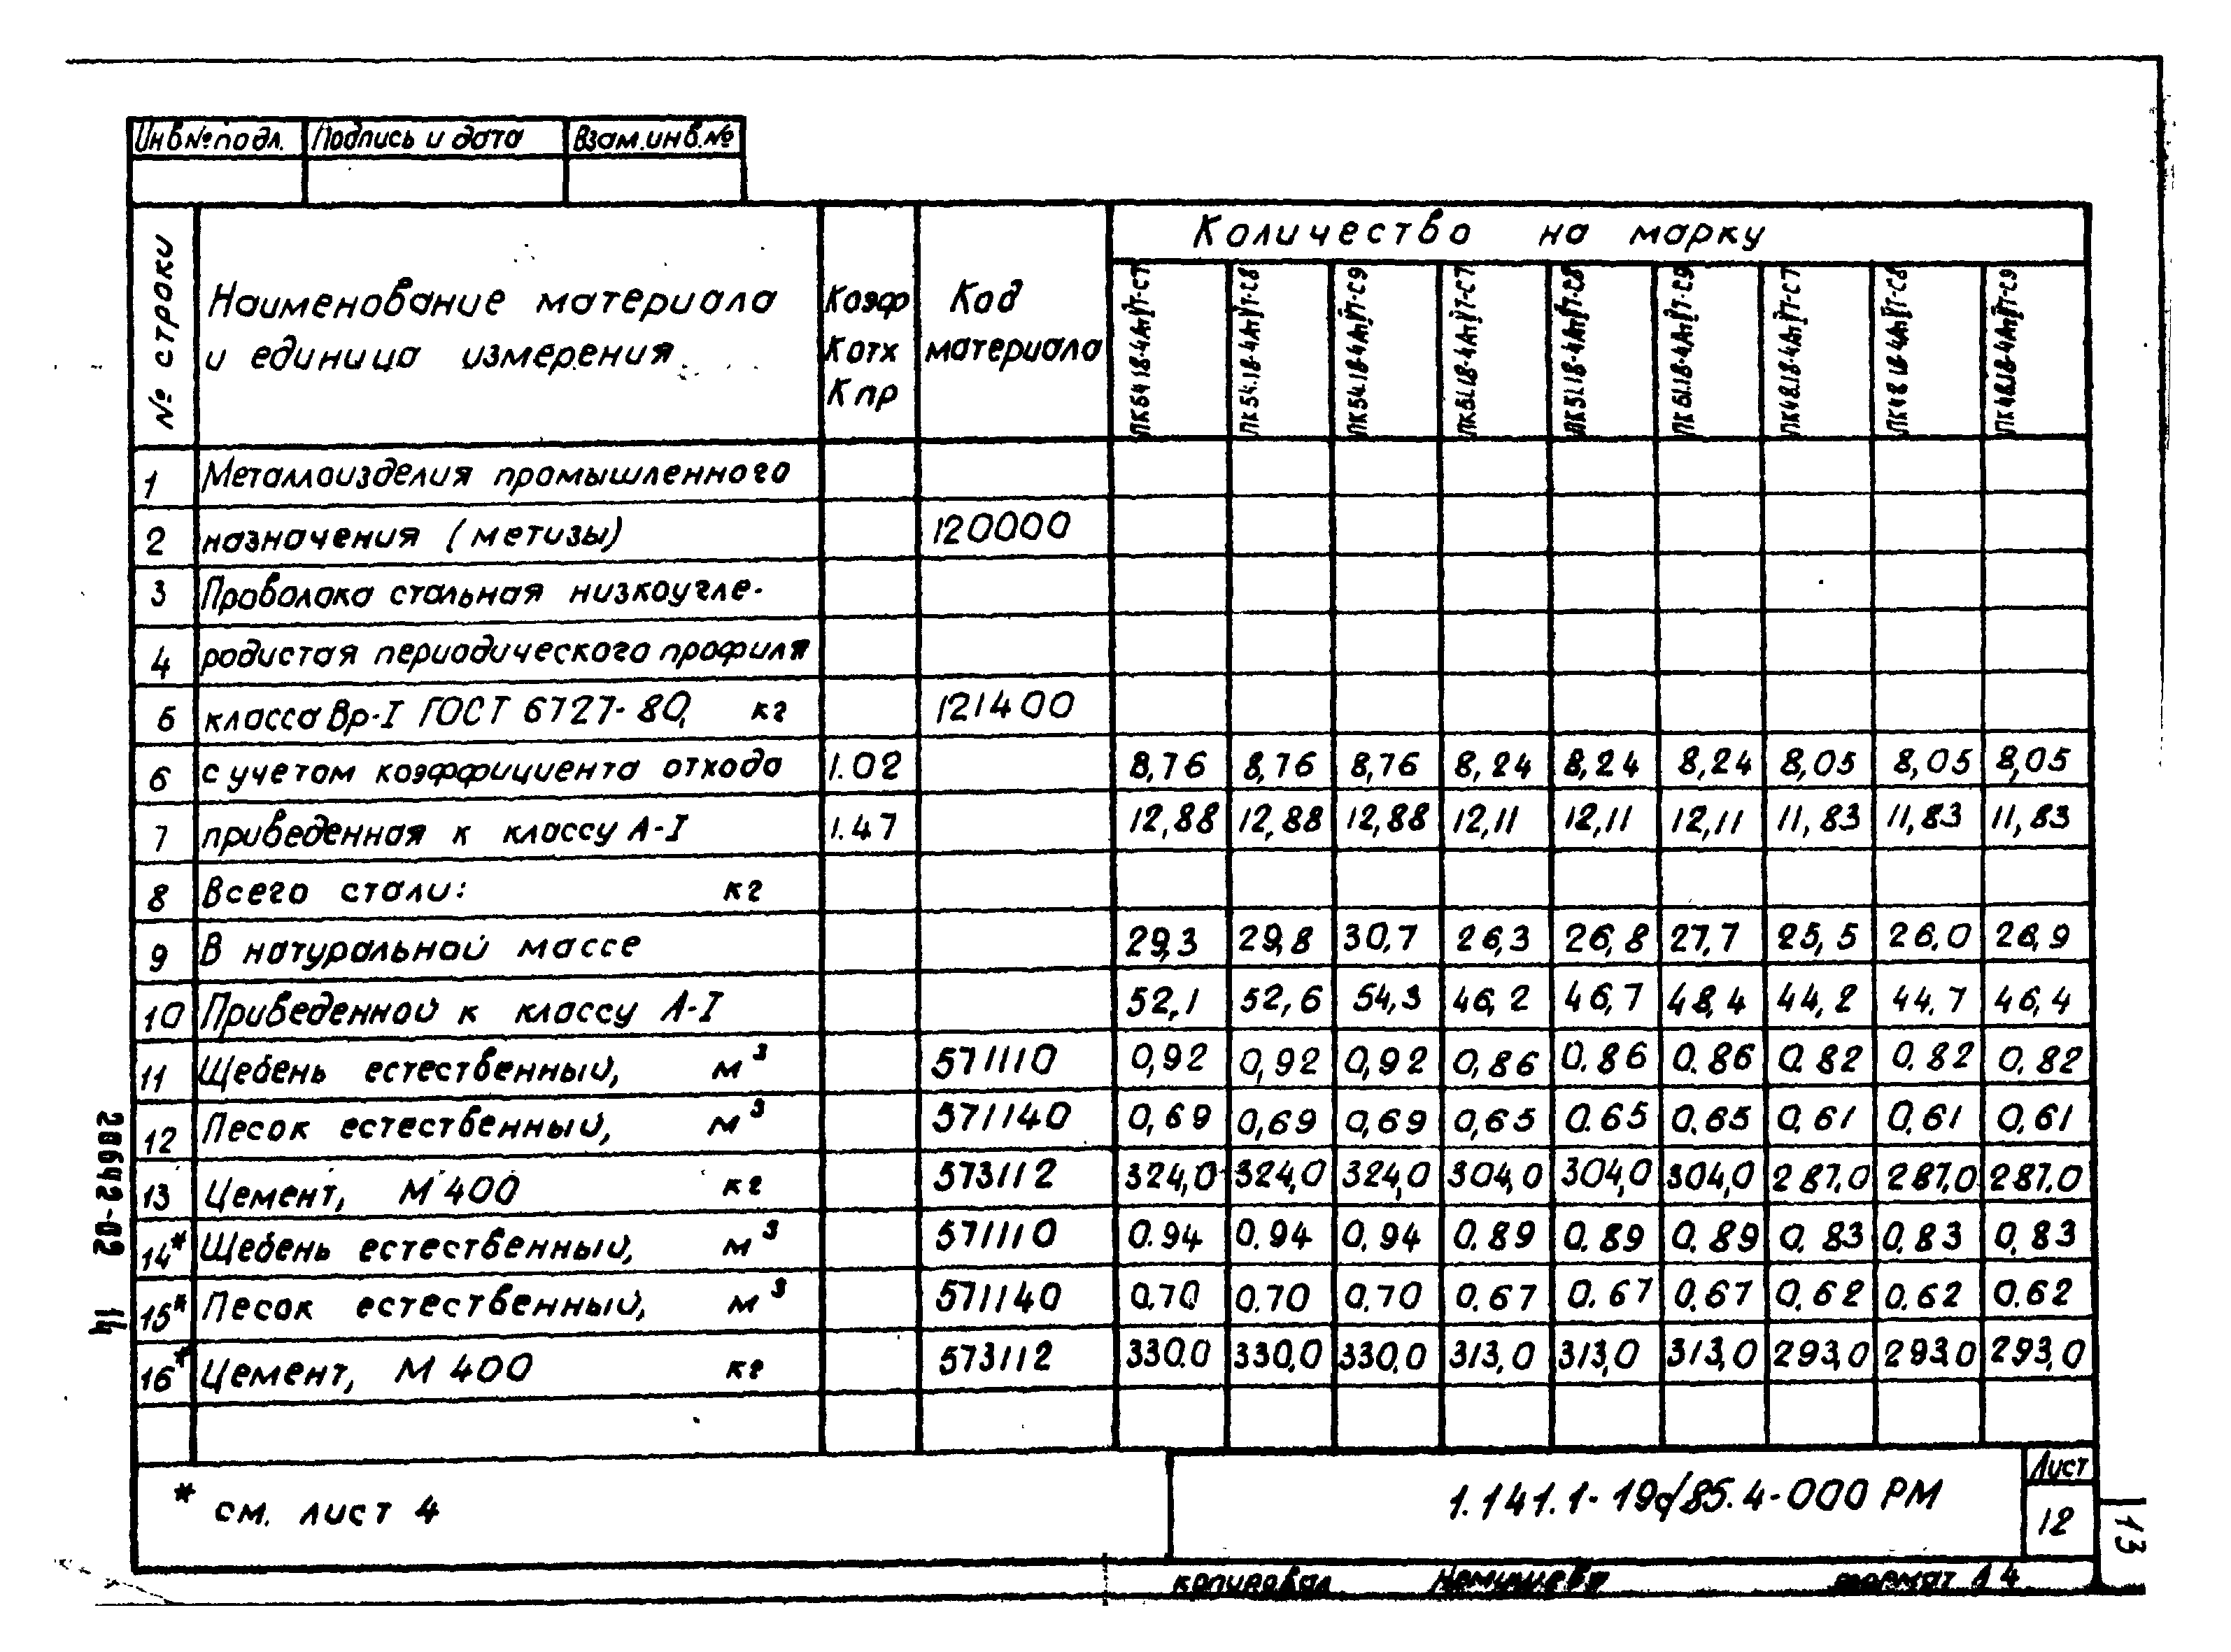 Инв№подл. Подпись и дата Взам.инв.№
№ строки
Наименование материала
и единица измерения
Коэф
Котх
Кпр
Код
материала
Количество на марку
1 Металлоизделия промышленного
2 назначения (метизы) 120000
3 Проволока стальная низкоугле-
4 родистая периодического профиля
5 класса Вр-I ГОСТ 6727-80, кг 121400
6 с учетом коэффициента отхода 1.02 8,76 8,76 8,76 8,24 8,24 8,24 8,05 8,05 8,05
7 приведенная к классу А-I 1.47 12,88 12,88 12,88 12,11 12,11 12,11 11,83 11,83 11,83
8 Всего стали: кг
9 В натуральной массе 29,3 29,8 30,7 26,3 26,8 27,7 25,5 26.0 26,9
10 Приведенной к классу А-I 52,1 52,6 54,3 46,2 46,7 48,4 44,2 44.7 46,4
11 Щебень естественный, м³ 571110 0,92 0,92 0,92 0,86 0.86 0.86 0.82 0.82 0.82
12 Песок естественный, м³ 571140 0,69 0,69 0,69 0,65 0.65 0.65 0,61 0,61 0,61
13 Цемент, М400 кг 573112 324,0 324,0 324,0 304,0 304,0 304,0 287,0 287,0 287,0
14* Щебень естественный, м³ 571110 0.94 0.94 0,94 0.89 0.89 0.89 0,83 0,83 0,83
15* Песок естественный, м³ 571140 0.70 0.70 0.70 0.67 0.67 0.67 0.62 0.62 0.62
16* Цемент, М400 кг 573112 330.0 330,0 330,0 313,0 313,0 313,0 293,0 293,0 293,0
* см. лист 4
1.141.1-19с/85.4-000 РМ
Лист
12
копировал формат А4
20642-02 14
13